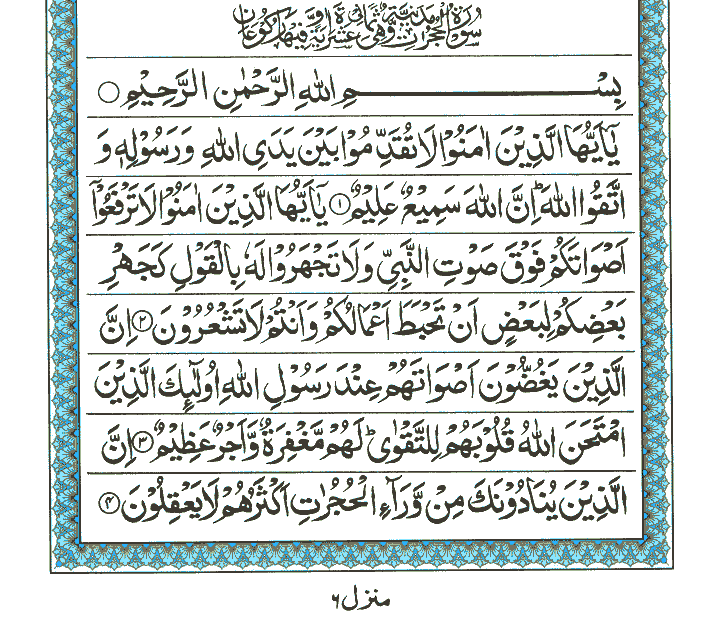 سُوْرَةُ الْحُجُرٰتِ مَدَنِيَّةٌ وَّهِيَ ثَمَانِيَ عَشْرَةَ اٰيَةً وَّفِيْهَا رُكُوْعَانِ
بِسْمِ اللهِ الرَّحْمٰنِ الرَّحِيْمِ ○
يٰٓاَيُّهَا الَّذِيْنَ اٰمَنُوْا لَا تُقَدِّمُوْا بَيْنَ يَدَىِ اللهِ وَرَسُوْلِهٖ وَ
اتَّقُوا اللهَ ؕ اِنَّ اللهَ سَمِيْعٌ عَلِيْمٌ ① يٰٓاَيُّهَا الَّذِيْنَ اٰمَنُوْا لَا تَرْفَعُوْٓا
اَصْوَاتَكُمْ فَوْقَ صَوْتِ النَّبِيِّ وَلَا تَجْهَرُوْا لَهٗ بِالْقَوْلِ كَجَهْرِ
بَعْضِكُمْ لِبَعْضٍ اَنْ تَحْبَطَ اَعْمَالُكُمْ وَاَنْتُمْ لَا تَشْعُرُوْنَ ② اِنَّ
الَّذِيْنَ يَغُضُّوْنَ اَصْوَاتَهُمْ عِنْدَ رَسُوْلِ اللهِ اُولٰٓئِكَ الَّذِيْنَ
امْتَحَنَ اللهُ قُلُوْبَهُمْ لِلتَّقْوٰى ؕ لَهُمْ مَّغْفِرَةٌ وَّاَجْرٌ عَظِيْمٌ ③ اِنَّ
الَّذِيْنَ يُنَادُوْنَكَ مِنْ وَّرَآءِ الْحُجُرٰتِ اَكْثَرُهُمْ لَا يَعْقِلُوْنَ ④
منزل ۶